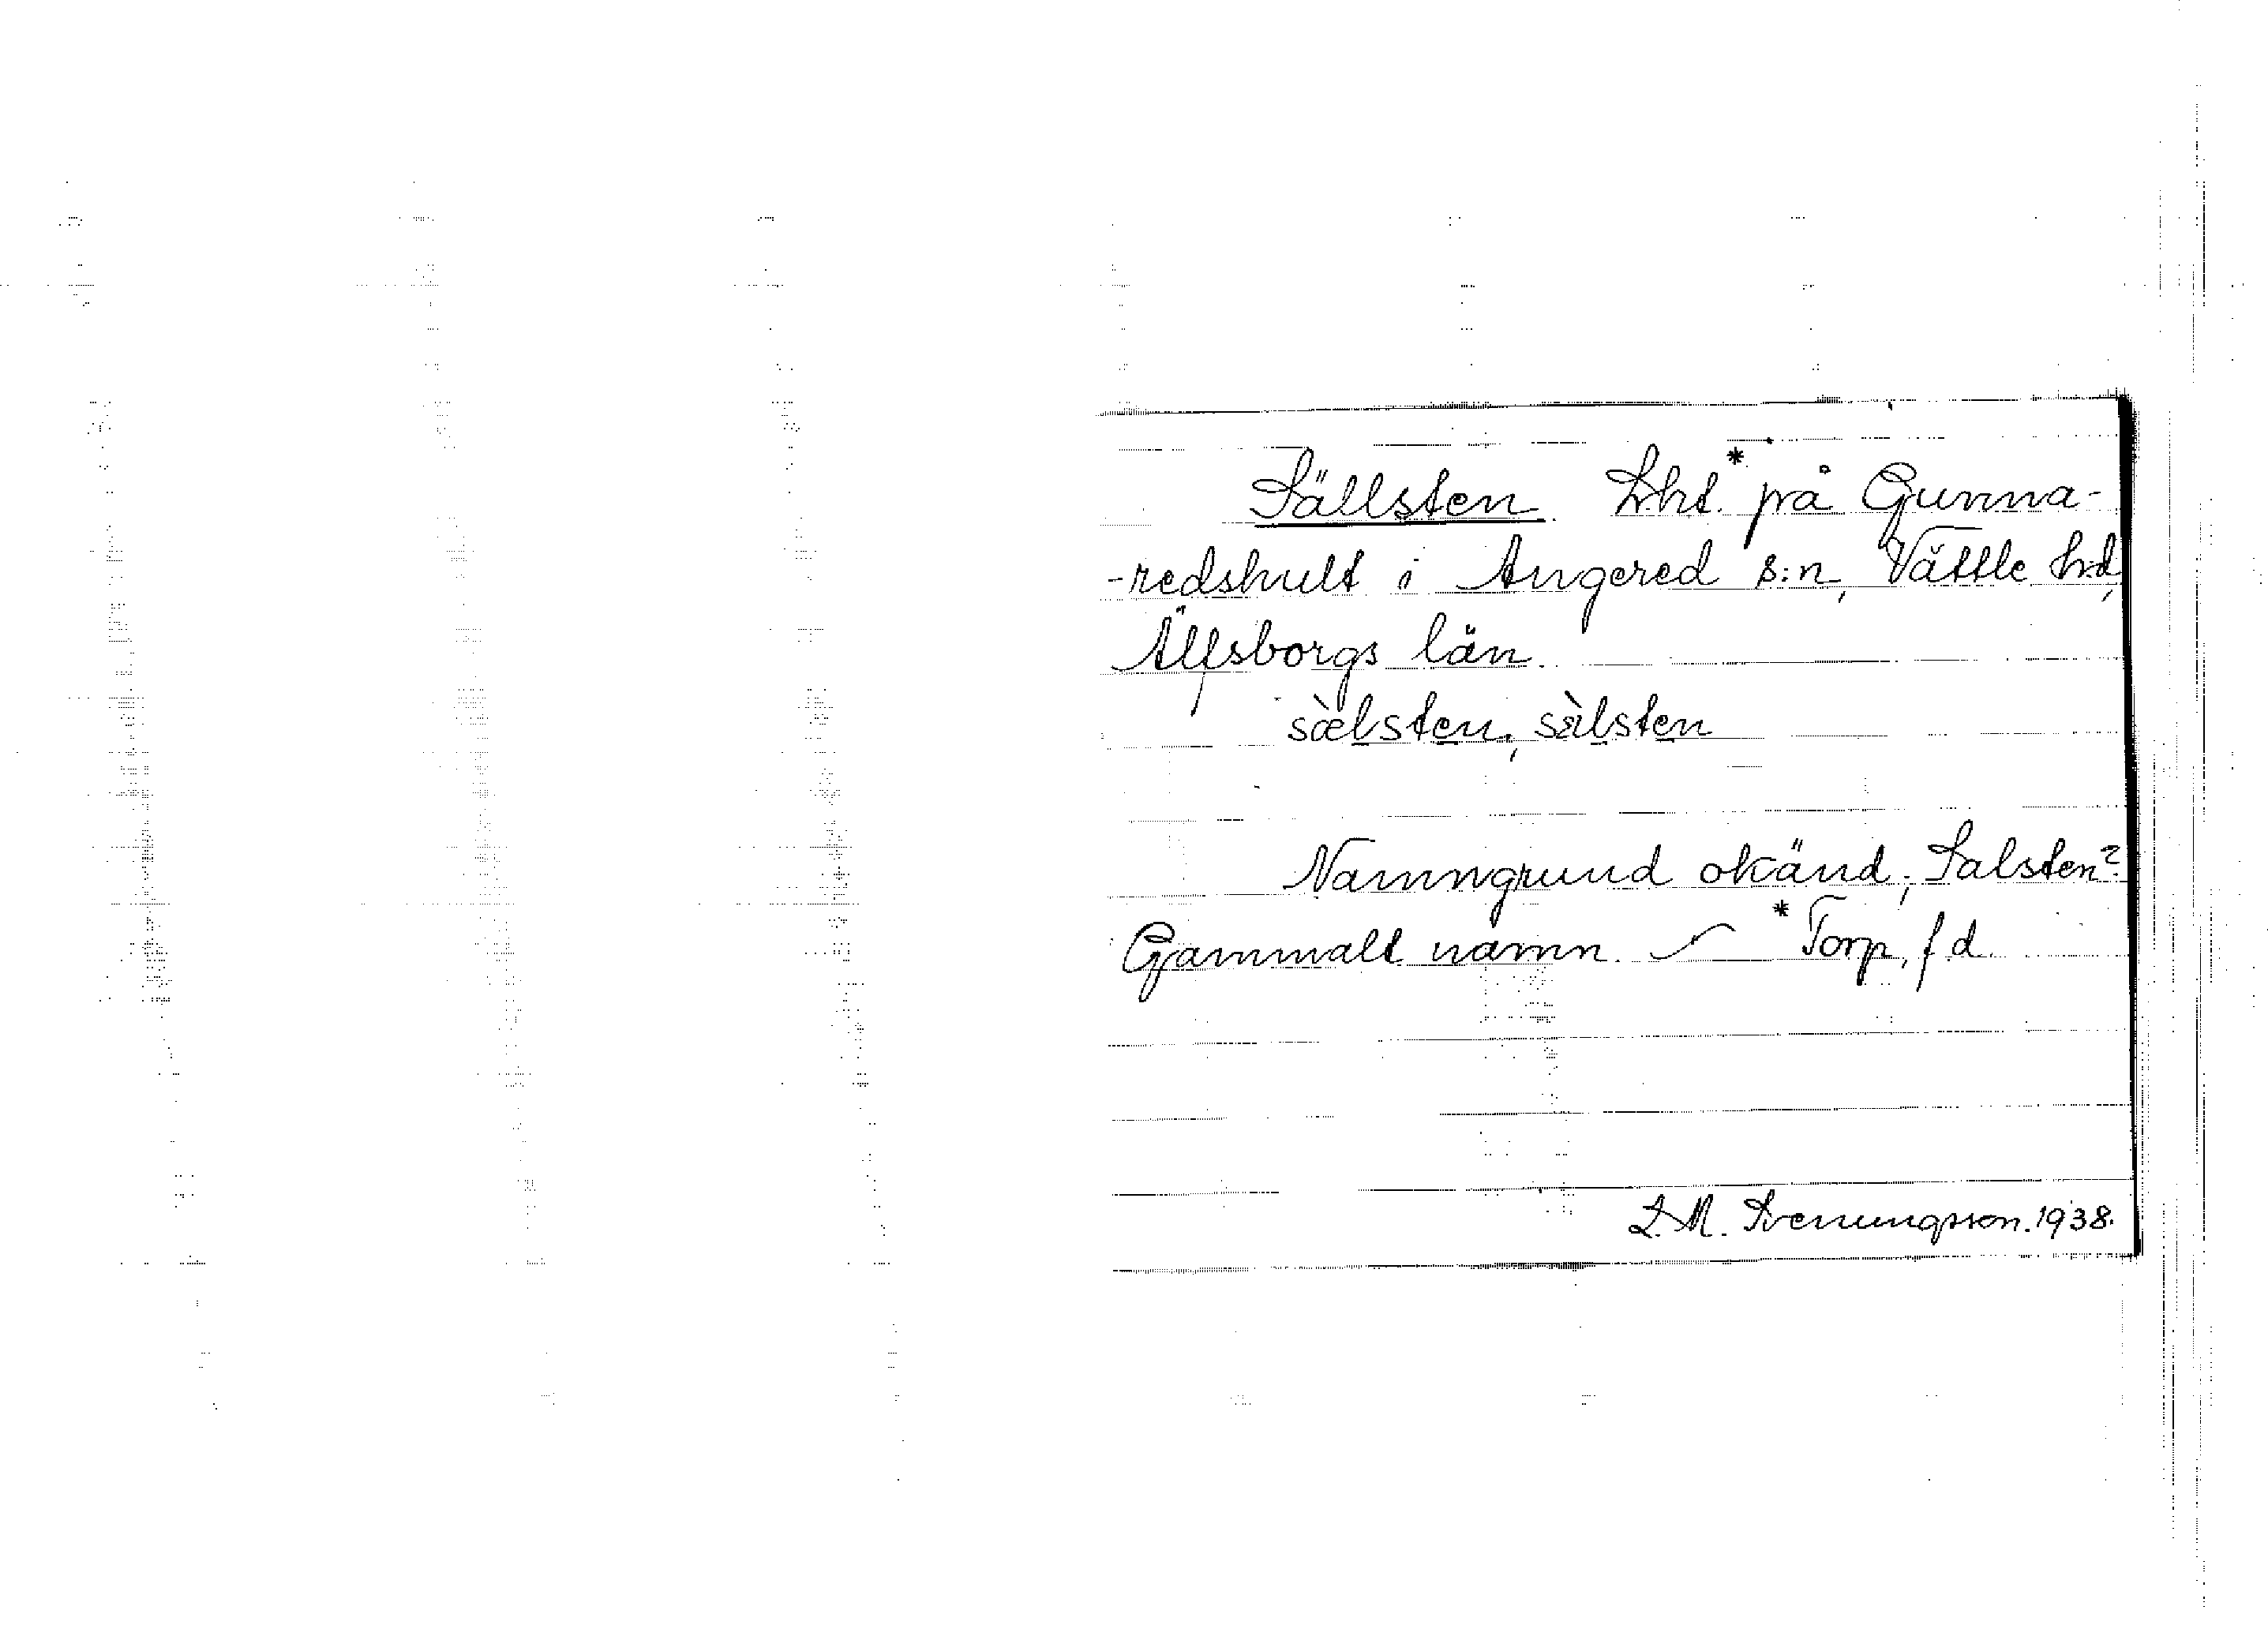 Sällsten. Lht.* på Gunna-
-redshult i Angered s:n, Vättle hd,
Älfsborgs län.
sæ̀lsten, sàlsten
Namngrund okänd; Salsten?
Gammalt namn. *Torp, f d.
L. M. Svenungsson. 1938.